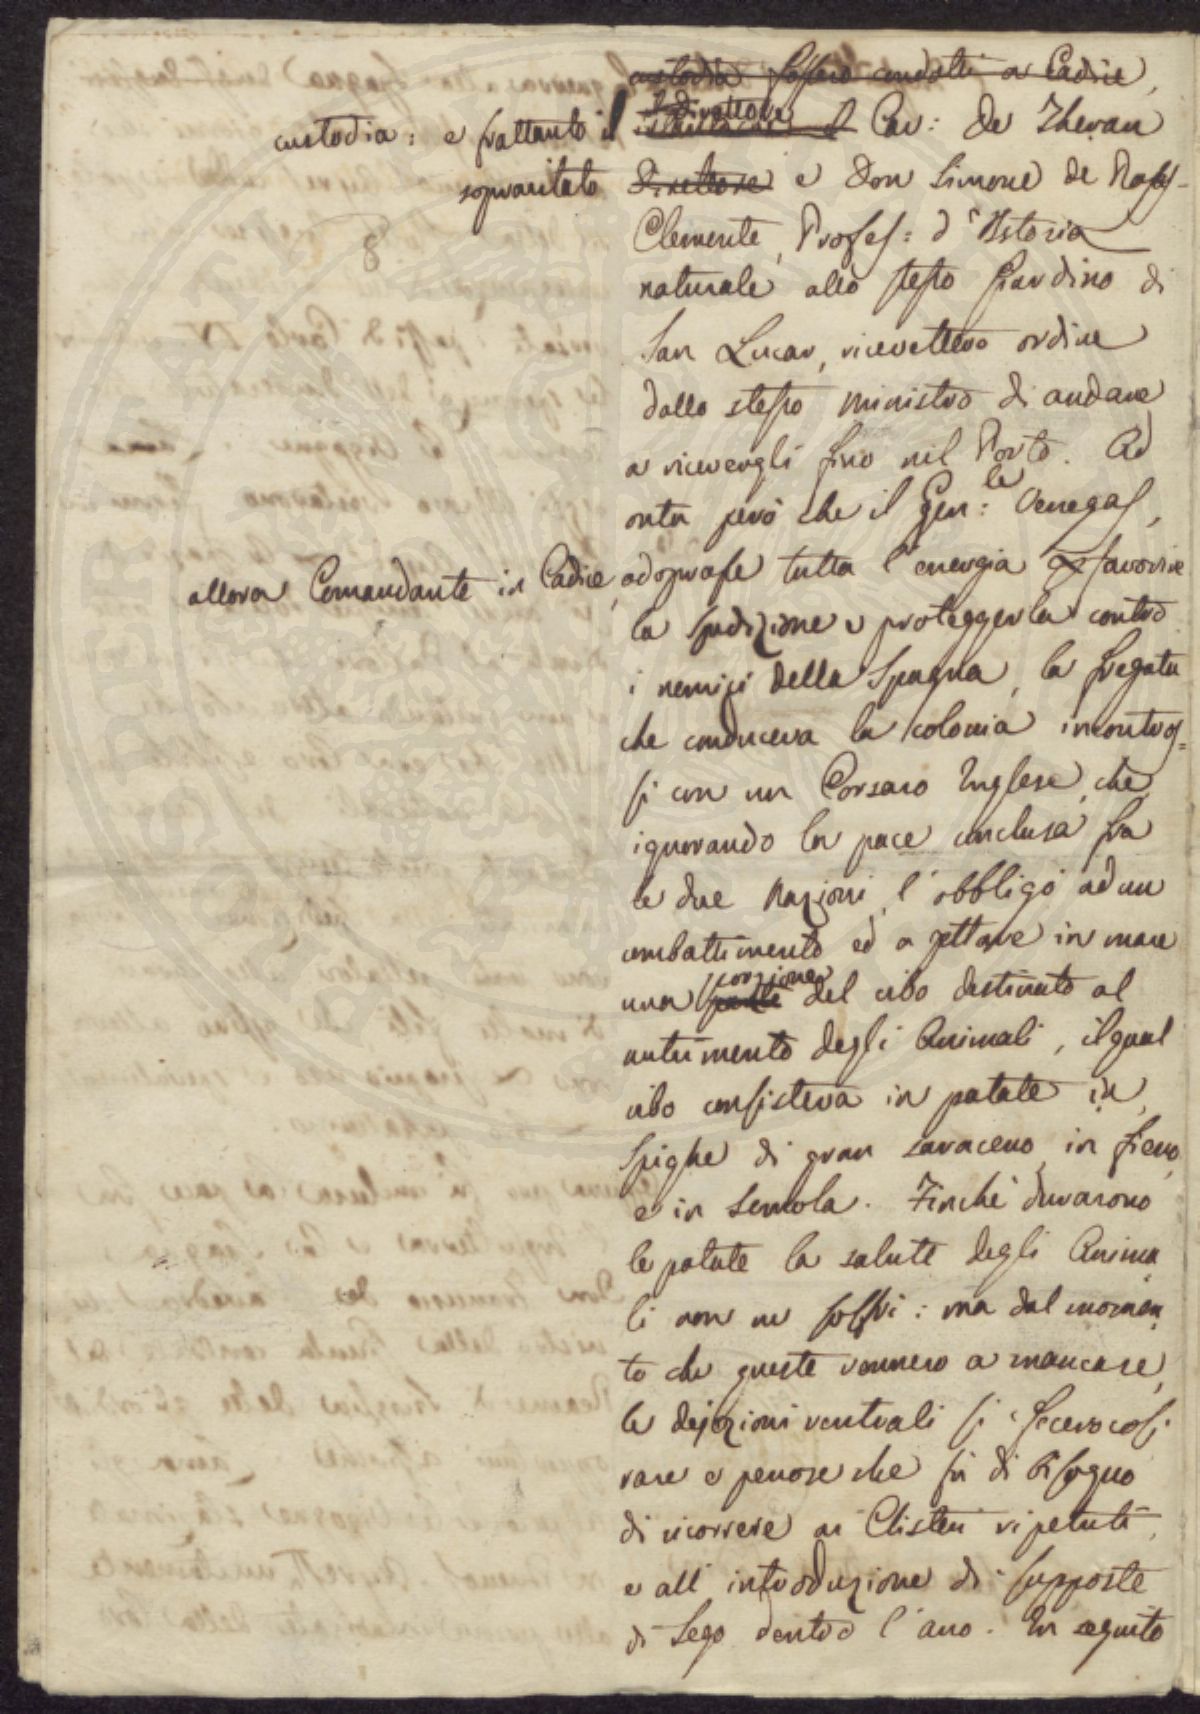 custodia fossero condotti a Cadice,
custodia: e frattanto il Direttore il Cav: De Theran
sopracitato Direttore e Don Simone de Rojas-
Clemente, Profess: d'Istoria
naturale allo stesso Giardino di
San Lucar, ricevettero ordine
dallo stesso ministro di andare
a ricevergli fino nel Porto. Ad
onta però che il Gen:le Venegas,
allora Comandante in Cadice, adoprasse tutta l'energia a favorire
la spedizione e proteggerla contro
i nemici della Spagna, la fregata
che conduceva la colonia incontros=
si con un Corsaro Inglese, che
ignorando la pace conclusa fra
le due Nazioni, l'obbligò ad un
combattimento ed a gettare in mare
una parte porzione del cibo destinato al
nutrimento degli Animali, il qual
cibo consisteva in patate in
Spighe di gran saraceno, in fieno,
e in Semola. Finchè durarono
le patate la salute degli Anima
li non ne soffrì: ma dal momen
to che queste vennero a mancare,
le dejezioni ventrali si fecero così
rare e penose che fu di bisogno
di ricorrere ai Clisteri ripetuti,
e all'introduzione di supposte
di Sego dentro l'ano. In seguito